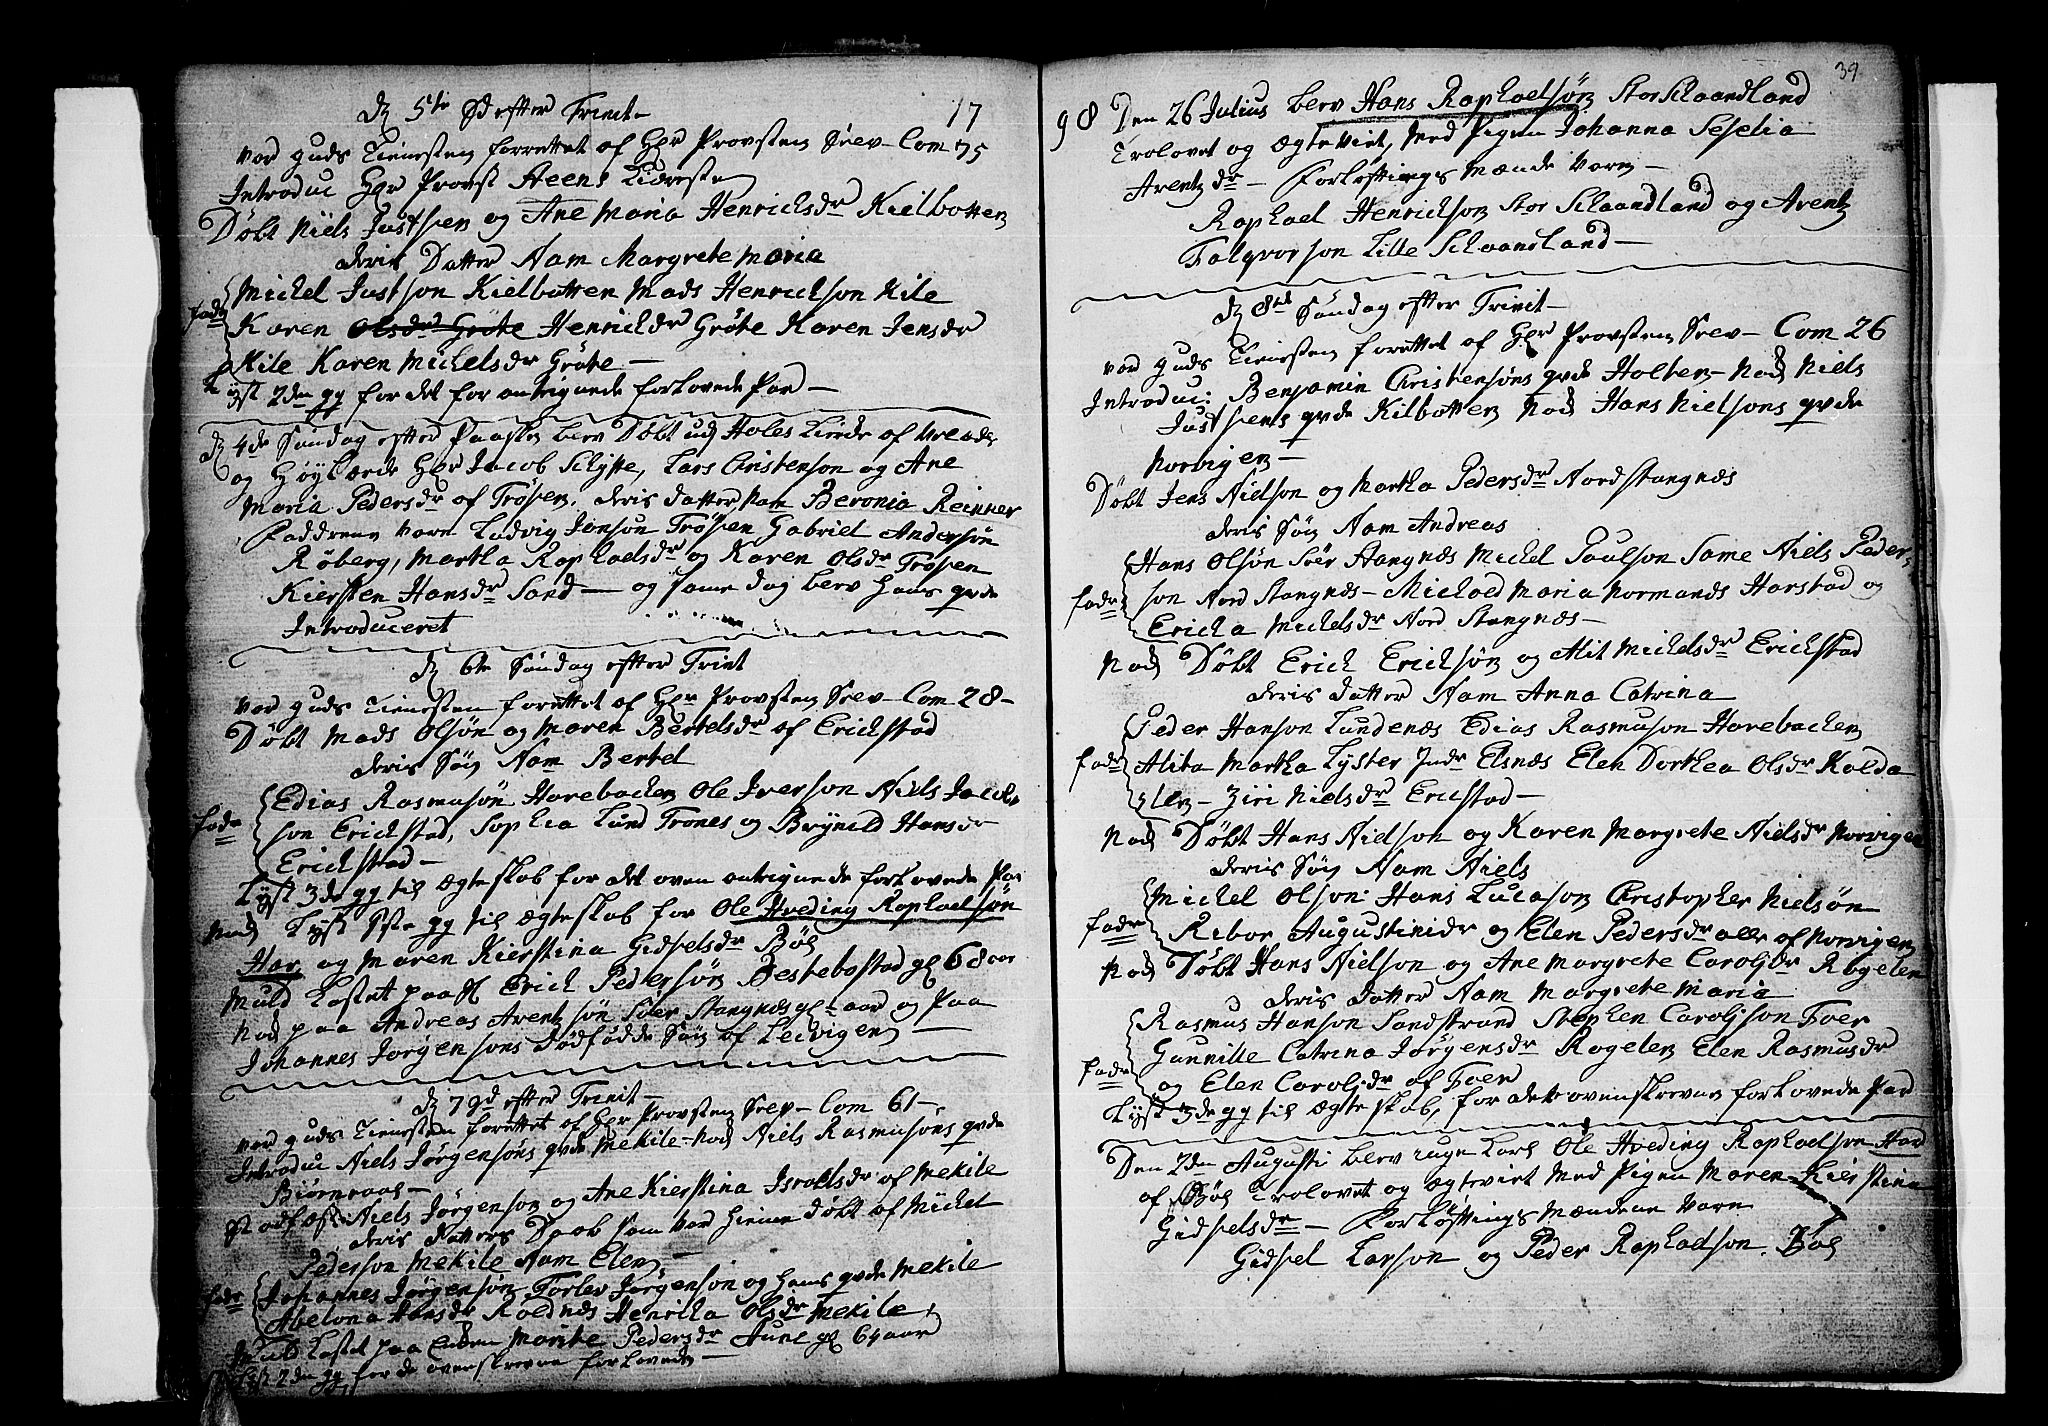 17
D 5te Sd efter Trinit
var guds Tienesten forrettet af Her Provsten Srev Com 75
Introduc Her Provst Steens Tienesten
Døbt Niels Justsen og Ane Maria Henrichsdr Kielbotten
deris Datter Nam Margrete Maria
Michel Justson Kielbotten Mads Henrichson Kile
fadr Karen Olsdr Grøte Henrichdr Grøte Karen Jensdr
Kile Karen Michelsdr Grøte
Lyst 2den gg for det for antegnede forlovede Par
D 4de Søndag efter Paasken blev Døbt ud Holes Kirke af
og Høylærde Her Jacob Schytte, Lars Christenson og Ane
Maria Pedersdr af Trøsen. deris datter, Nam Beronia Reinner
Faddrene vare Ludvig Janson Trøsen Gabriel Andersøn
Røberg, Martha Raphaelsdr og Karen Olsdr Trøsen
Kiersten Hansdr Sand og same dag blev hans qvde
Introduceret
D 6te Søndag efter Trinit
var guds Tienesten forettet af Her Provsten Srev Com 28
Døbt Mads Olsøn og Maren Bertelsdr af Erichstad
deris Søn Nam Bertel
Edias Rasmusøn Harebacken Ole Iverson Niels Jacob
fadr son Erichstad, Sophia Lund Trones og Brynild Hansdr
Erichstad
Lyst 3de gg til Ægteskab for det oven antegnede forlovede Par
Nod Lyst 1ste gg til Ægteskab for Ole Hveding Raphaelsøn
Har og Maren Kierstina Gidselsdr Bøl
Muld Kastet paa Erich Pedersøn Bestebostad gl 68 aar
Nod paa Andreas Arentsøn Søer Stangnes gl 1 aar og paa
Johannes Jørgensons dødfødde Søn af Leirvigen
D 7de Sd efter Trinit
var guds Tienesten forettet af Her Provsten Srev Com 61
Introduc Niels Jørgensøns qvde Mekile Nod Niels Rasmusøns qvde
Biørnraas
Stadfæst Niels Jørgenson og Ane Kierstina Israelsdr af Mekile
deris datters Daab som var hieme døbt af Michel
Pederson Mekile Nam Elen
fadr Johannes Jørgensøn Torlev Jørgenson og hans qvde Mekile
Abelona Hansdr Roldnes Henrika Olsdr Mekile
Muld Kastet paa Enken Marite Pedersdr Aune gl 64 aar
Lyst 2den gg for de ovenskrevne forlovede
39
98 Den 26 Julius blev Hans Raphaelsøn Stor Slaandland
Trolovet og Ægteviet, Med Pigen Johanna Seselia
Arentzdr Forløftnings Mænde Varen
Raphael Henrichson Stor Slaandland og Arentz
Falqvorson Lille Slaandland
D 8de Søndag efter Trinit
var guds Tienesten forettet af Her Provsten Srev Com 26
Introduc: Benjamin Christensøns qvde Holten Nod Niels
Justsens qvde Kilbotten Nod Hans Nielsons qvde
Norvigen
Døbt Jens Nielson og Martha Pedersdr Nordstangnæs
deris Søn Nam Andreas
Hans Olsøn Søer Stangnæs Michel Poulson Same Niels Peder-
fadr son Nord Stangnæs Michael Maria Normands Harstad og
Ericha Michelsdr Nord Stangnæs
Nod Døbt Erich Erichsøn og Alit Michelsdr Erichstad
deris datter Nam Anna Catrina
Peder Hanson Lundenæs Edias Rasmuson Harebacken
fadr Alita Martha Lyster Elsnæs Elen Dorthea Olsdr Kolda
len Ziri Nielsdr Ericstad
Nod Døbt Hans Nielson og Karen Margrete Nielsdr Norvigen
deris Søn Nam Niels
Michel Olson: Hans Lucason Christopher Nielsøn
fadr Ribor Augustinidr og Elen Pedersdr alle af Norvigen
Nod Døbt Hans Nielson og Ane Margrete Caroljdr Rogelen
deris datter Nam Margrete Maria
Rasmus Hanson Sandstrand Stephen Caroljson Foer
fadr Gunnille Catrina Jørgensdr Rogelen Elen Rasmusdr
og Elen Caroljdr af Foer
Lyst 3de gg til Ægteskab, for det ovenskrevne forlovede Par
Den 2den Augusti blev unge Karl Ole Hveding Raphaelson Har
af Bøl Trolovet og Ægteviet Med Pigen Maren Kierstina
Gidselsdr Forløftnings Mændene Varen
Gidsel Larson og Peder Raphaelson. Bøl